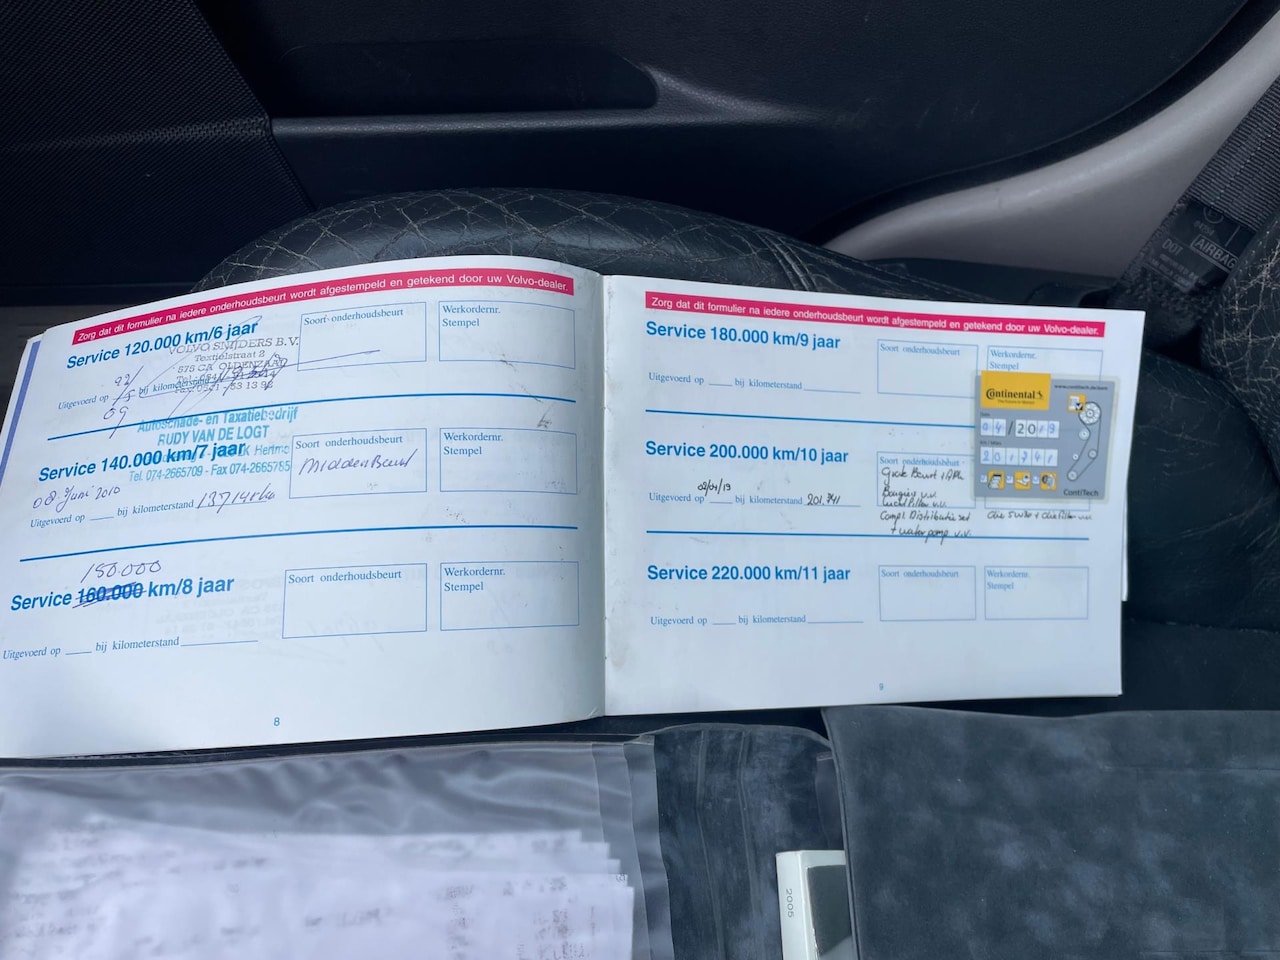 Zorg dat dit formulier na iedere onderhoudsbeurt wordt afgestempeld en getekend door uw Volvo-dealer.
Service 120.000 km/6 jaar
Soort onderhoudsbeurt
Werkordernr.
Stempel
VOLVO SNIJDERS B.V.
Textielstraat 2
575 CA OLDENZAAL
Uitgevoerd op bij kilometerstand
09
Autoschade- en Taxatiebedrijf
RUDY VAN DE LOGT
Service 140.000 km/7 jaar
Tel. 074-2665709 - Fax 074-2665785
Soort onderhoudsbeurt
Middenbeurt
Werkordernr.
Stempel
08 Juni 2010
Uitgevoerd op ____ bij kilometerstand 137148 km
180.000
Service 160.000 km/8 jaar
Soort onderhoudsbeurt
Werkordernr.
Stempel
Uitgevoerd op ____ bij kilometerstand
8
Zorg dat dit formulier na iedere onderhoudsbeurt wordt afgestempeld en getekend door uw Volvo-dealer.
Service 180.000 km/9 jaar
Soort onderhoudsbeurt
Werkordernr.
Stempel
Uitgevoerd op ____ bij kilometerstand
Continental
www.contitech.de/aam
04/2019
201741
ContiTech
Service 200.000 km/10 jaar
Soort onderhoudsbeurt
Grote Beurt + APK
Bougies v.v.
Luchtfilter v.v.
Compl Distributie set
+ waterpomp v.v.
Olie 5W30 + Oliefilter v.v.
Uitgevoerd op ____ bij kilometerstand 201.741
Service 220.000 km/11 jaar
Soort onderhoudsbeurt
Werkordernr.
Stempel
Uitgevoerd op ____ bij kilometerstand
9
AIRBAG
2005